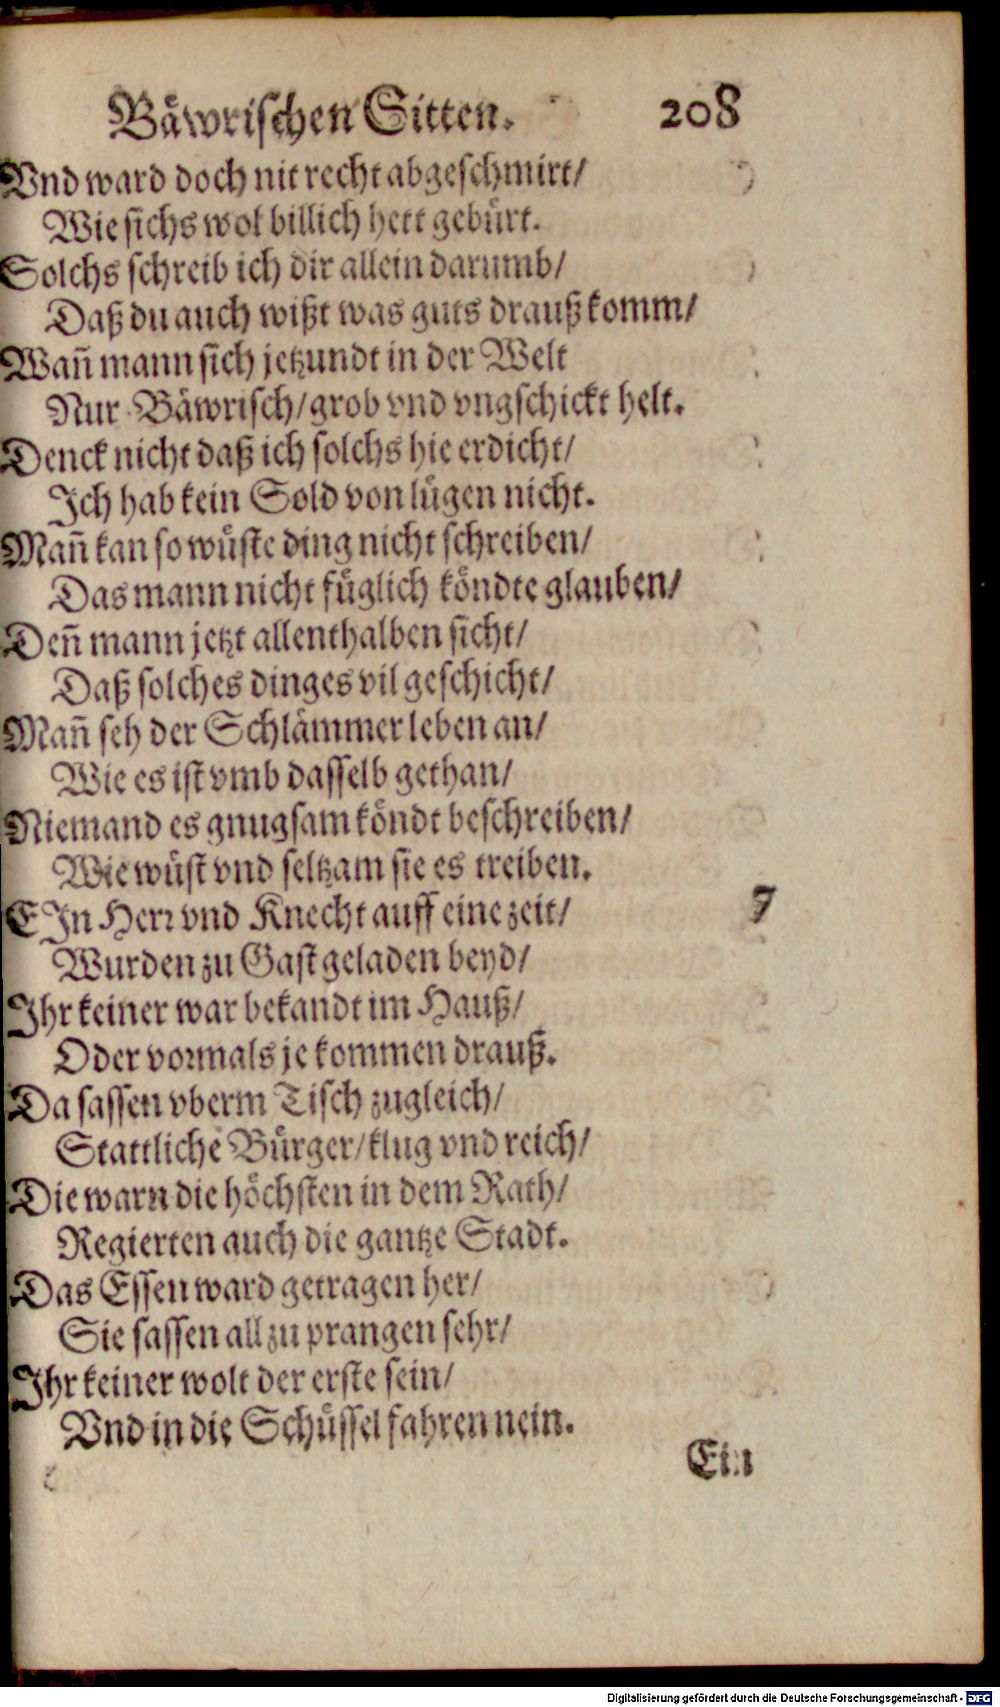 Bäwrischen Sitten. 208
Vnd ward doch nit recht abgeschmirt/
Wie sichs wol billich hett gebürt.
Solchs schreib ich dir allein darumb/
Daß du auch wißt was guts drauß komm/
Wañ mann sich jetzundt in der Welt
Nur Bäwrisch/grob vnd vngschickt helt.
Denck nicht daß ich solchs hie erdicht/
Ich hab kein Sold von lügen nicht.
Mañ kan so wüste ding nicht schreiben/
Das mann nicht füglich köndte glauben/
Deñ mann jetzt allenthalben sicht/
Daß solches dinges vil geschicht/
Mañ seh der Schlämmer leben an/
Wie es ist vmb dasselb gethan/
Niemand es gnugsam köndt beschreiben/
Wie wüst vnd seltzam sie es treiben.
EIn Herr vnd Knecht auff eine zeit/ 7
Wurden zu Gast geladen beyd/
Ihr keiner war bekandt im Hauß/
Oder vormals je kommen drauß.
Da sassen vberm Tisch zugleich/
Stattliche Bürger/klug vnd reich/
Die warn die höchsten in dem Rath/
Regierten auch die gantze Stadt.
Das Essen ward getragen her/
Sie sassen all zu prangen sehr/
Ihr keiner wolt der erste sein/
Vnd in die Schüssel fahren nein.
Ein
Digitalisierung gefördert durch die Deutsche Forschungsgemeinschaft - DFG